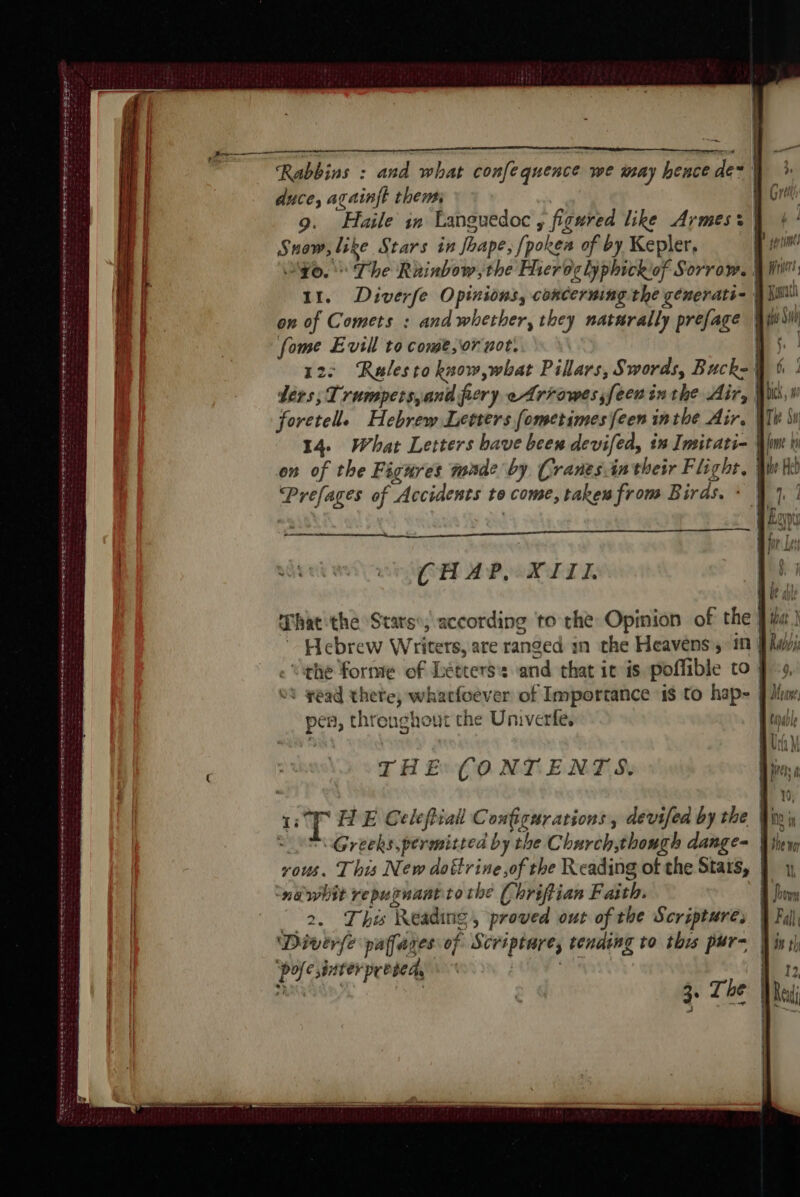 Rabbins : and what confequence we may hence de-
duce, againſt them.
9. Haile in Languedoc, figured like Armes:
Snow, like Stars in ſhape, ſpoken of by Kepler.
10. The Rainbow, the Hieroglyphick of Sorrow.
11. Diverſe Opinions, concerning the generati-
on of Comets : and whether, they naturally preſage
ſome Evill to come, or not.
12. Rules to know, what Pillars, Swords, Buck-
lers, Trumpets, and fiery Arrowes, ſeen in the Air,
foretell. Hebrew Letters ſometimes ſeen in the Air.
14. What Letters have been deviſed, in Imitati-
on of the Figures made by Cranes in their Flight.
Preſages of Accidents to come, taken from Birds.
CHAP. XIII.
That the Stars, according to the Opinion of the
Hebrew Writers, are ranged in the Heavens, in
the forme of Letters: and that it is poſſible to
read there, whatſoever of Importance is to hap-
pen, throughout the Univerſe.
THE CONTENTS.
1. THE Celeſtiall Configurations, deviſed by the
Greeks, permitted by the Church, though dange-
rous. This New doctrine, of the Reading of the Stars,
no whit repugnant to the Chriſtian Faith.
2. This Reading, proved out of the Scripture.
Diverſe paſſages of Scripture, tending to this pur-
poſe, interpreted.
3. The